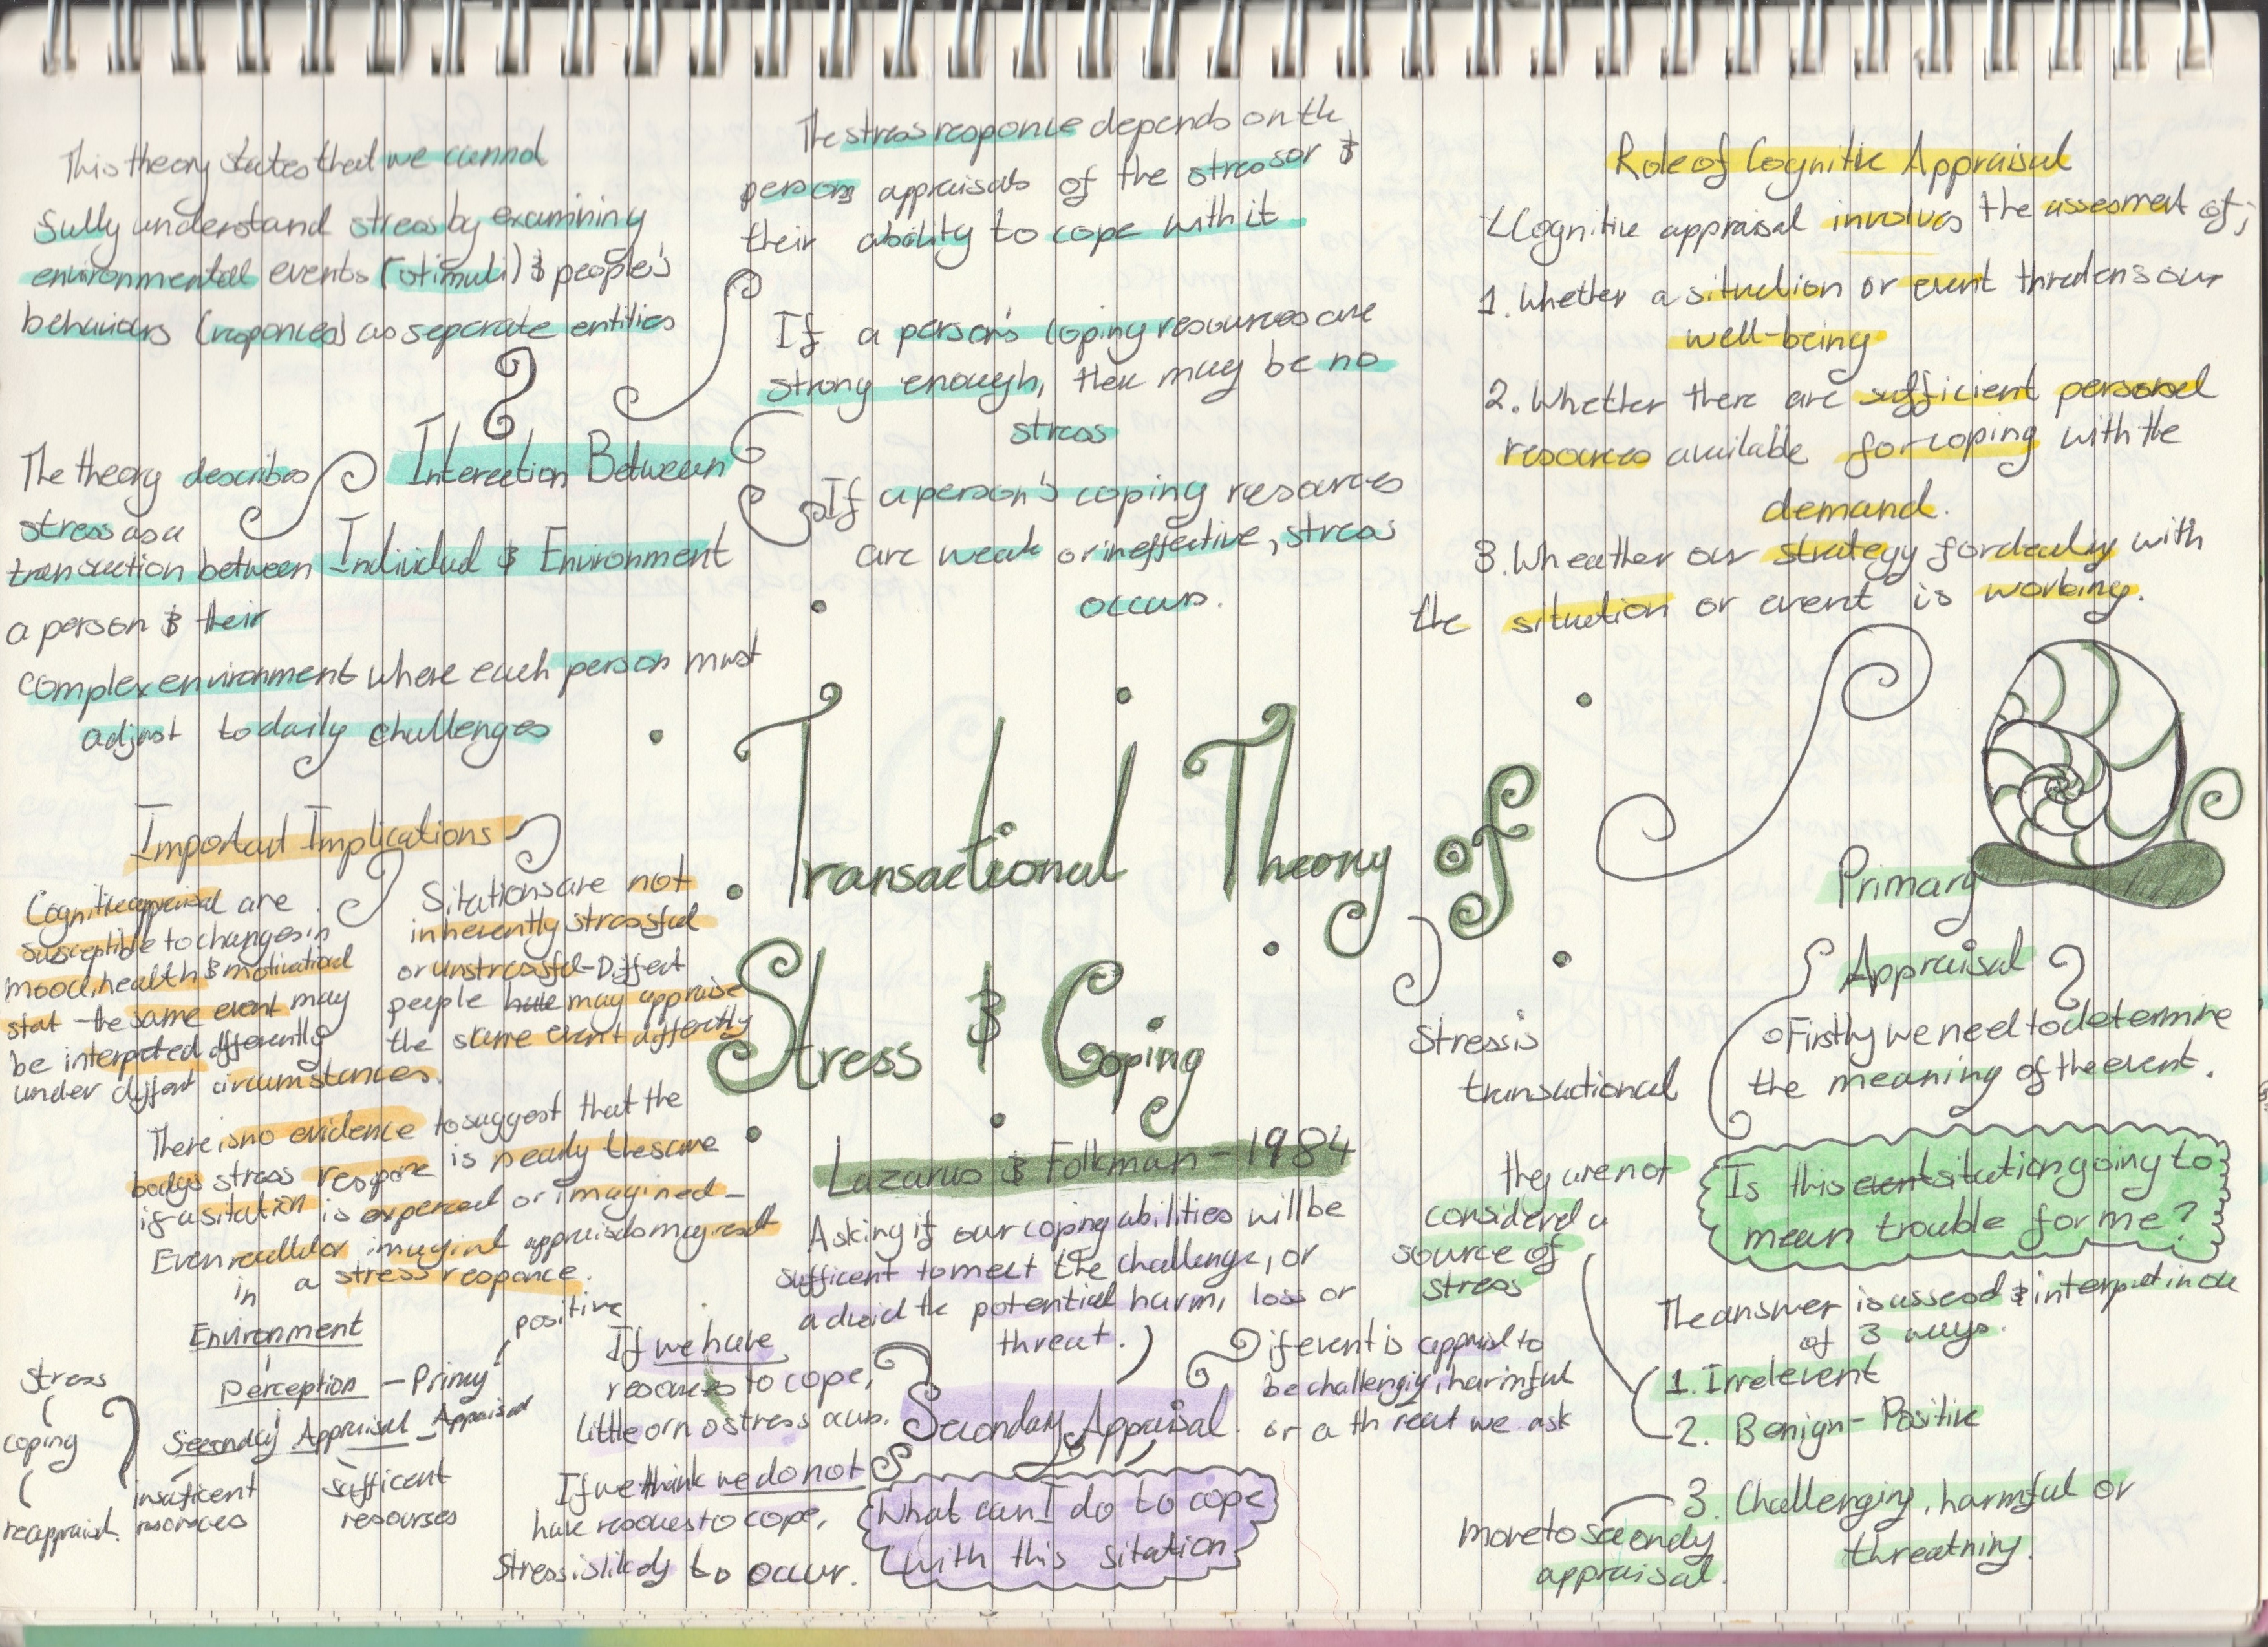 This theory states that we cannot
fully understand stress by examining
environmental events (stimuli) & people's
behaviours (responces) as separate entities
The theory describes
stress as a
transaction between
a person & their
complex environment where each person must
adjust to daily challenges
Interection Between
Individual & Environment
The stress responce depends on the
persons appraisals of the stressor &
their ability to cope with it
If a person's coping resources are
strong enough, there may be no
stress
If a person's coping resources
are weak or ineffective, stress
occurs.
Role of Cognitive Appraisal
Cognitive appraisal involves the assesment of;
1. Whether a situation or event threatens our
well-being
2. Whether there are sufficient personal
resources available for coping with the
demand.
3. Wheather our strategy for dealing with
the situation or event is working.
Transactional Theory of
Stress & Coping
Lazarus & Folkman - 1984
Important Implications
Cognitive appraisal are
susceptible to changes in
mood, health & motivational
stat - the same event may
be interpeted differently
under diffent circumstances.
Sitations are not
inherently stressful
or unstressful - Diffent
people have may appraise
the same event differtly
There is no evidence to suggest that the
bodys stress respone is nearly the same
if a sitation is experced or imagined -
Even recalled or imagint appraisals may result
in a stress responce.
Environment
Perception - Primay
Appraisal
positive
Seconday Appraisal
insuficent
resorces
sufficent
resourses
Stress
coping
reappraisal.
Asking if our coping abilities will be
sufficent to meet the challenge, or
adviod the potential harm, loss or
threat.
If we have
resources to cope,
little or no stress ocurs.
Secondary Appraisal
If we think we do not
have resoures to cope,
stress is likely to occur.
What can I do to cope
with this sitation
if event is appraised to
be challenging, harmful
or a threat we ask
Stress is
transactional
Primary
Appraisal
Firstly we need to determine
the meaning of the event.
Is this event situation going to
mean trouble for me?
The answer is assesed & interpret in one
of 3 ways.
1. Irrelevent
2. Benign - Positive
3. Challenging, harmful or
threatning.
they are not
considered a
source of
stress
more to secondy
appraisal.